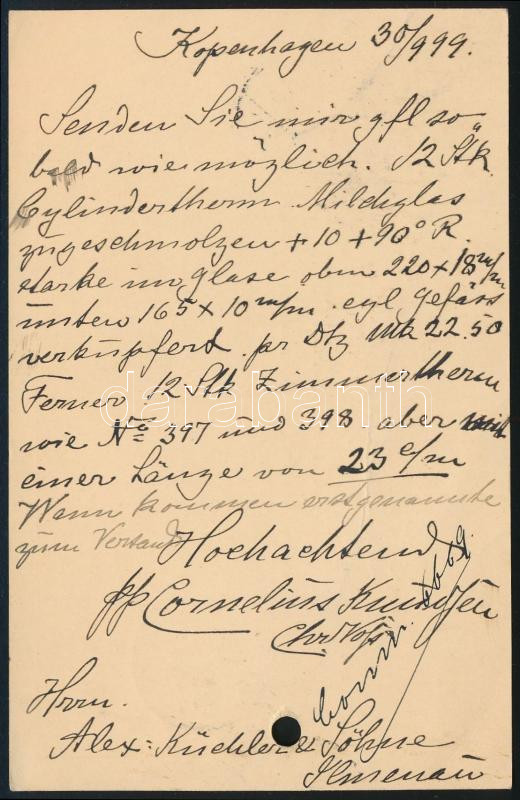 Kopenhagen 30/9 99.
Senden Sie mir gfl so
bald wie möglich. 12 Stk
Cylindertherm Milchglas
zugeschmolzen + 10 + 90° R.
starke im glase oben 220 x 18 m/m
unten 165 x 10 m/m. cyl Gefäss
verkupfert pr Dtz Mk 22.50
Ferner 12 Stk Zimmertherm
wie No 397 und 398 aber mit
einer Länge von 23 c/m
Wann kommen erstgenannte
zum Versand
Hochachtend
pp Cornelius Knudsen
Chr
Comm.
Hrrn.
Alex: Küchler & Söhne
Ilmenau
darabanth